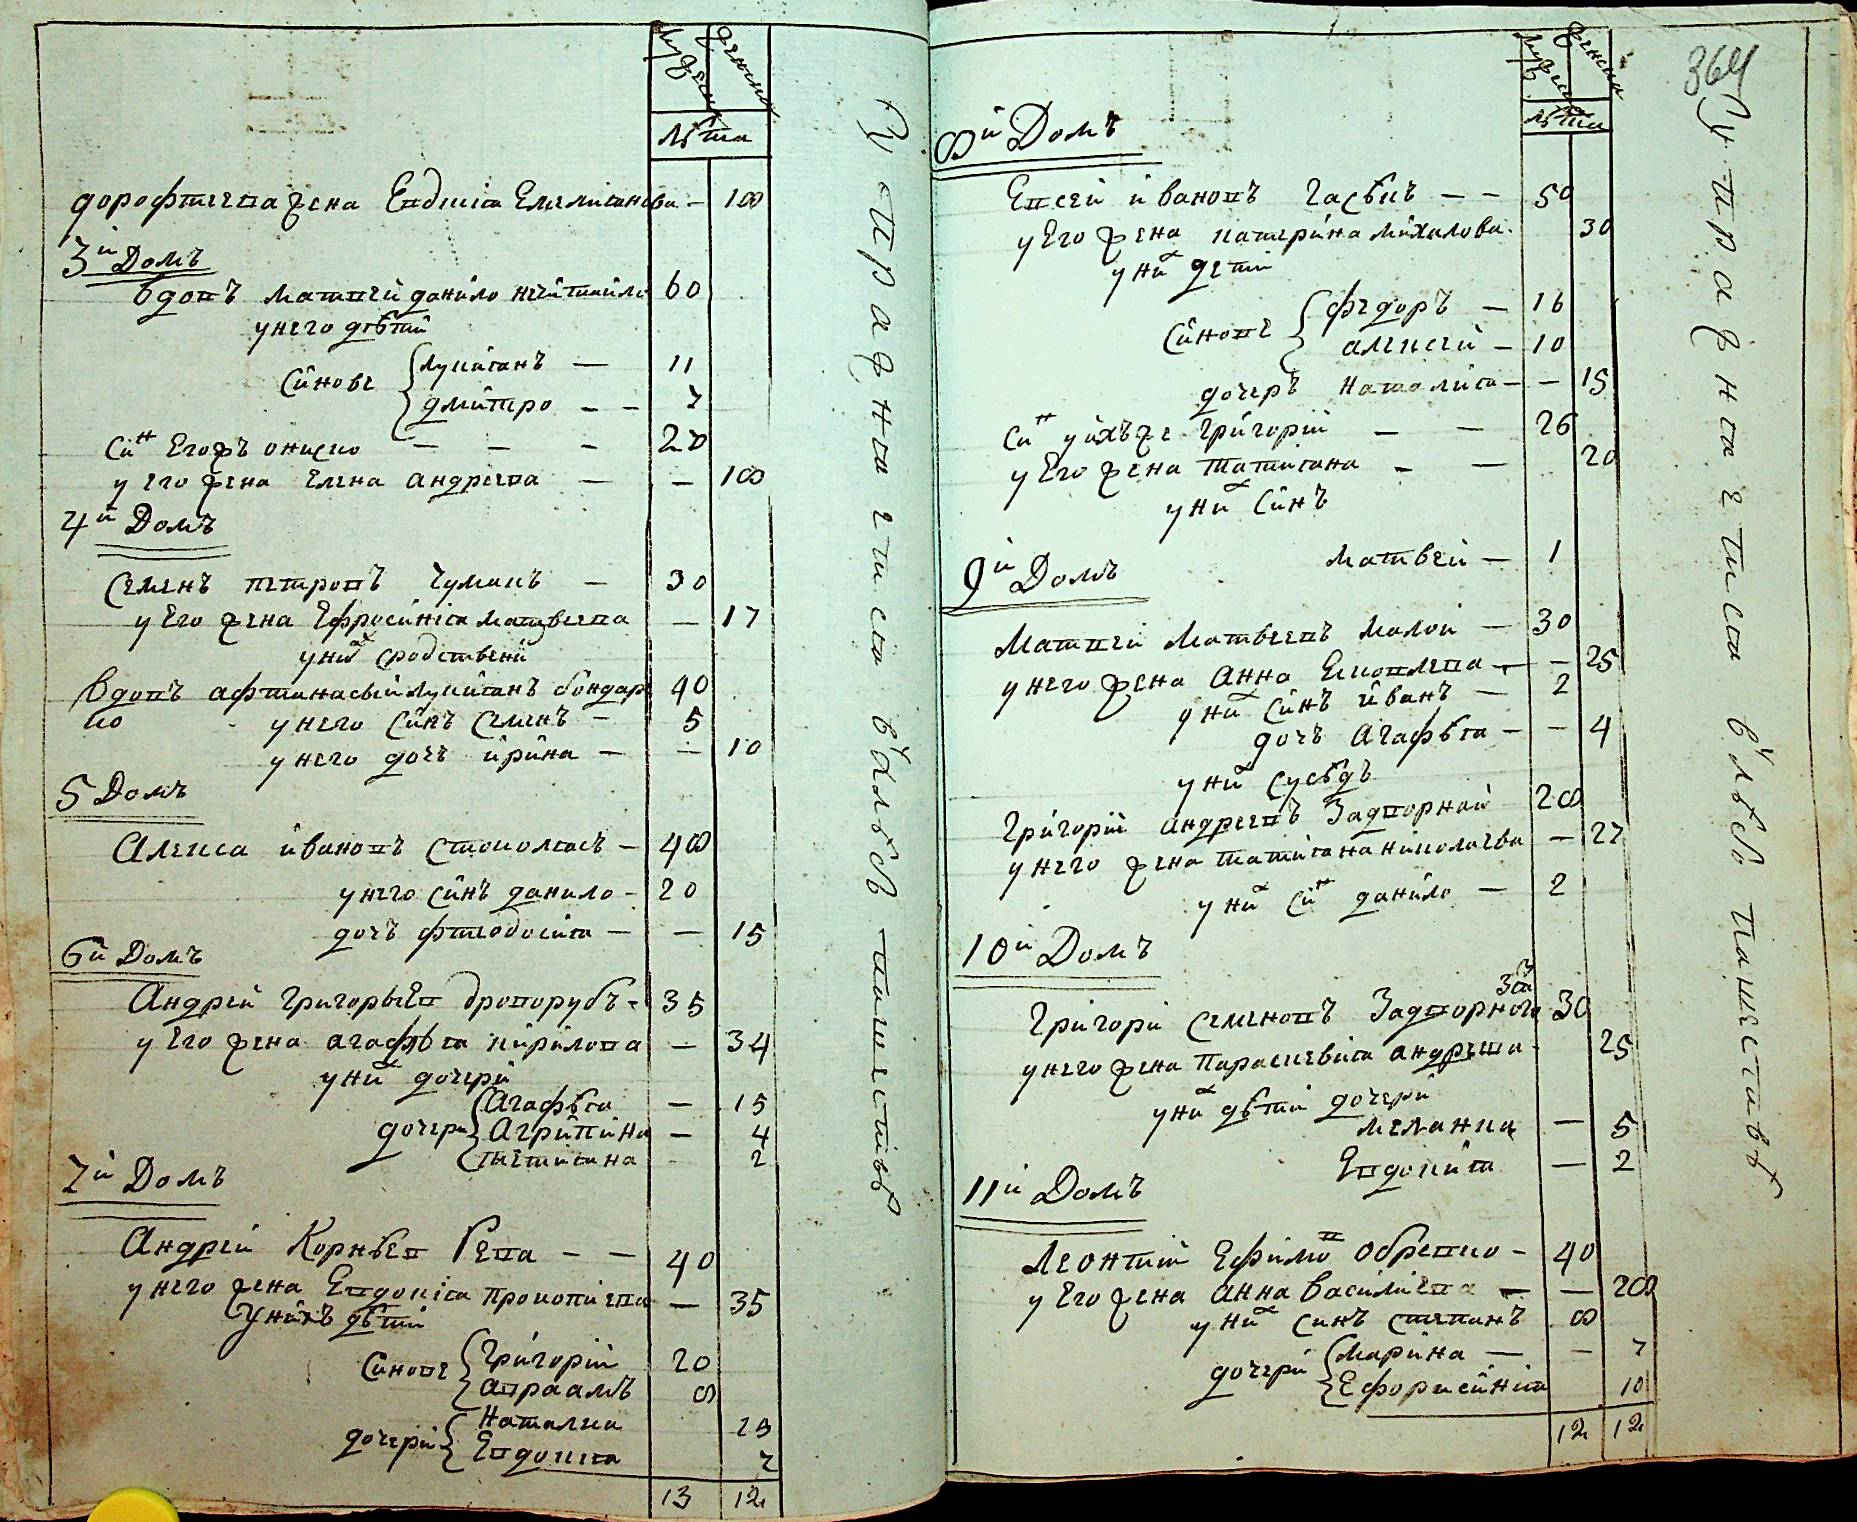 мужеска женска
лѣта
дорофтиева жена Евдокіа Емелианова — 18
3й Домъ
вдовъ матвей данило нечитайло 60
у него дѣтій
синове лукіанъ — 11
дмитро — — 7
Синъ Егоръ ониско — — — 20
у Его жена Елена андреева — — 18
4й Домъ
Семенъ петровъ чумакъ — 30
у Его жена Ефросиніа матвеева — 17
у них сродствений
вдовъ афтанасый лукіанъ бондар 40
ко у него синъ семенъ — 5
у него дочъ ирина — — 10
5 Домъ
Алекса ивановъ стоколясъ — 48
у него синъ данило — 20
дочъ фтеодосиіа — — 15
6й Домъ
Андрей григорыев дроворубъ — 35
у Его жена агафѣіа кирилова — 34
у них дочери
дочери Агафѣіа — 15
Агрипина — 4
тетиіана 2
7й Домъ
Андрей Корнѣев Репа — — 40
у него жена Евдокіа прокопиева — 35
У нихъ дѣтій
синове григорій 20
авраамъ 8
дочери Наталка 13
Евдокиіа 7
13 12
У стражнаегиско в'ѣлѣсѣ
364
мужеска женска
лѣта
8й Домъ
Евсей ивановъ Гасѣнъ — — 50
у Его жена катерина михалова. 30
у них дети
синове федоръ — 16
алексей — 10
дочеръ Наталиіа — — 15
Синъ у ихъ же григорій — — 26
у Его жена татиіана — — 20
у них синъ
матвей — 1
9й Домъ
Матвей Матвеевъ малой — 30
у него жена анна Ековлева — — 25
у них синъ иванъ — 2
дочъ агафѣіа — — 4
у них сусѣдъ
григорій андреевъ Задворной 28
у него жена татиіана николаева — 27
у них синъ данило — 2
10й Домъ
григори семеновъ Задворного 30
у него жена параскевиіа андреева 25
у них дѣтій дочери
меланка — 5
Евдокиіа — 2
11й Домъ
Леонтий Ефимов обрепко — 40
у Его жена анна василиева — — 28
у них синъ степанъ 8
дочери марина — — 7
Ефоросиніа 10
12 12